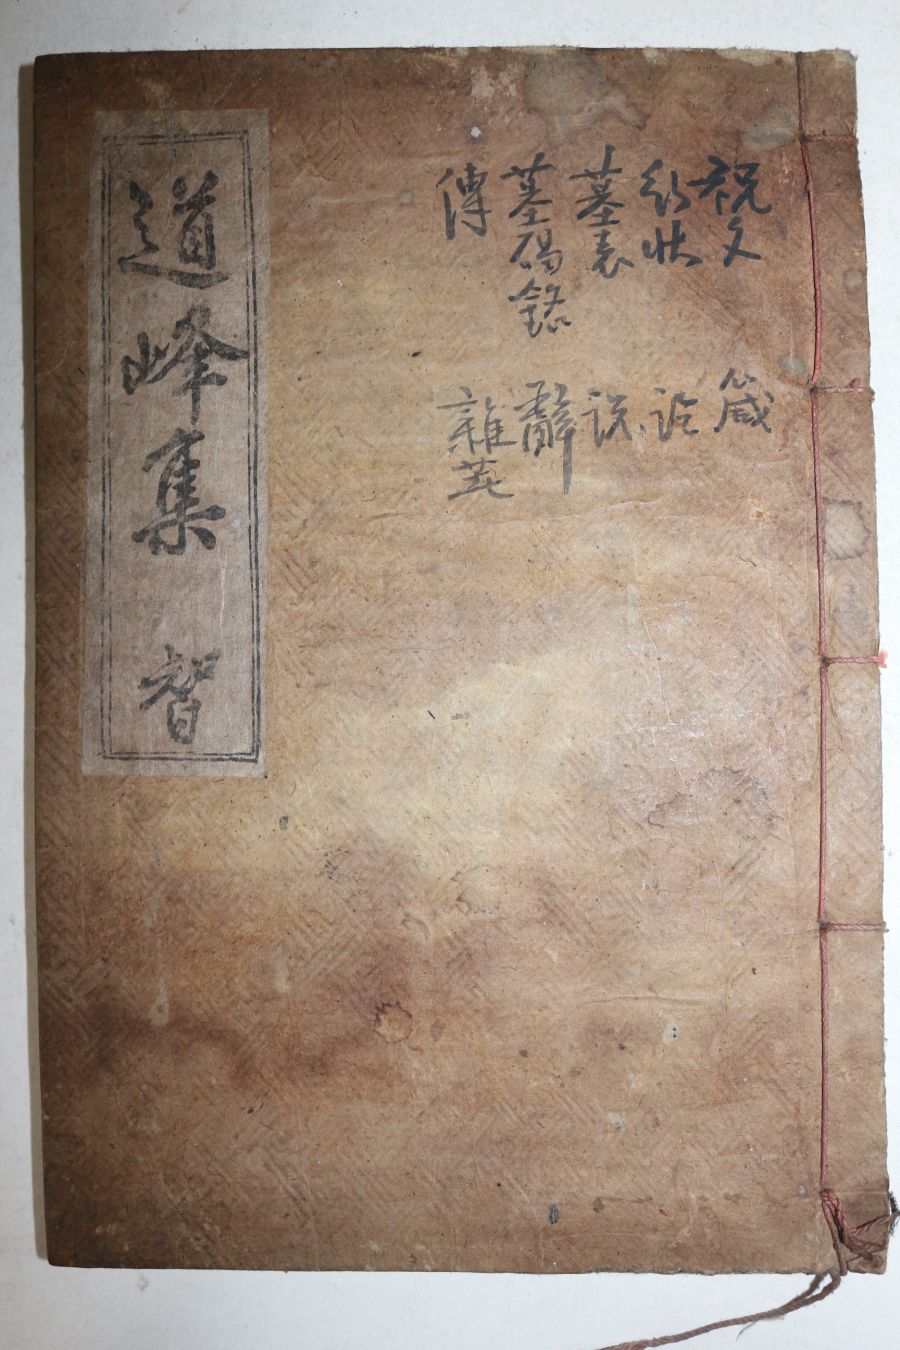 道峰集 智
祝文
行狀
墓表
墓碣銘
傳
箴
論
説
辭
雜著